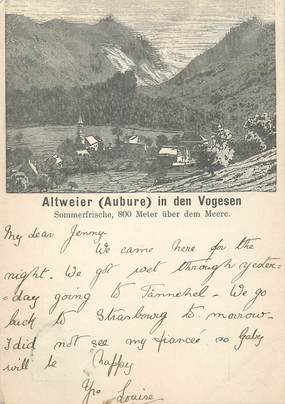 Altweier (Aubure) in den Vogesen
Sommerfrische, 800 Meter über dem Meere.
My dear Jenny
We came here for the
night. We got wet through yester-
=day going to Tännchel - We go
back to Strasbourg to morrow-
I did not see my fiancée so Gaby
will be happy
Yrs Louise